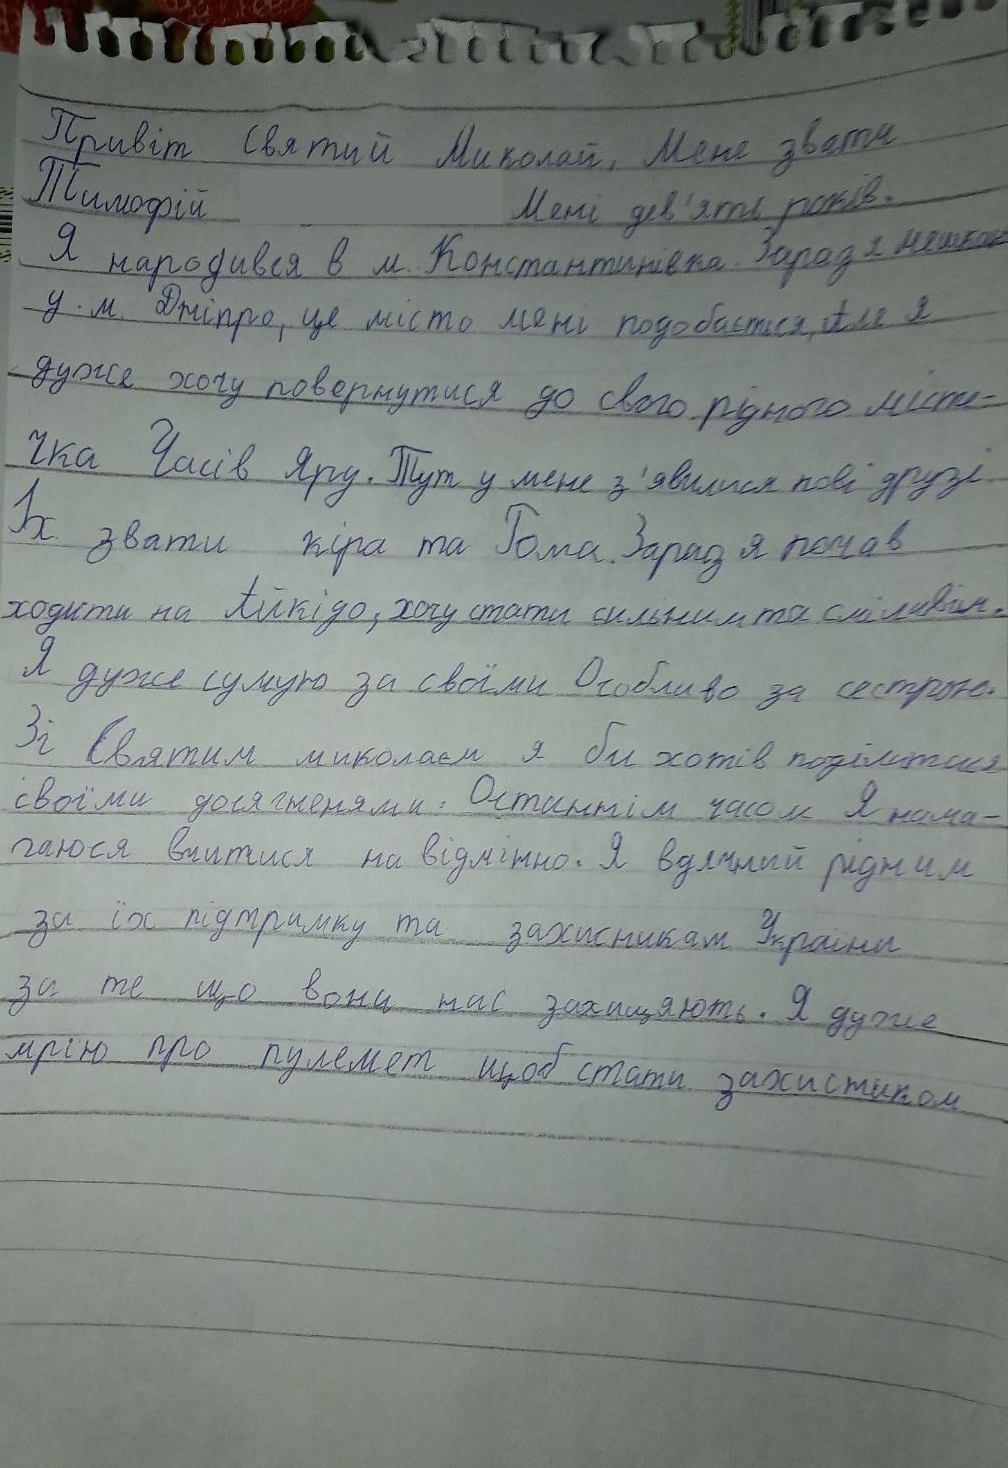 Привіт Святий Миколай, Мене звати
Тимофій Мені дев'ять років.
Я народився в м. Константинівка. Зараз я мешкаю
у м. Дніпро, це місто мені подобається, Але я
дуже хочу повернутися до свого рідного місте-
чка Часів Яру. Тут у мене з'явилися нові друзі
Їх звати кіра та Тома. Зараз я почав
ходити на Айкідо, хочу стати сильним та сміливім.
Я дуже сумую за своїми Особливо за сестрою.
Зі Святим миколаєм я би хотів поділитися
своїми досягненями: Останнім часом Я нама-
гаюся вчитися на відмінно. Я вдячний рідним
за їх підтримку та захисникам України
за те що вони нас захищяють. Я дуже
мрію про пулемет щоб стати захистиком